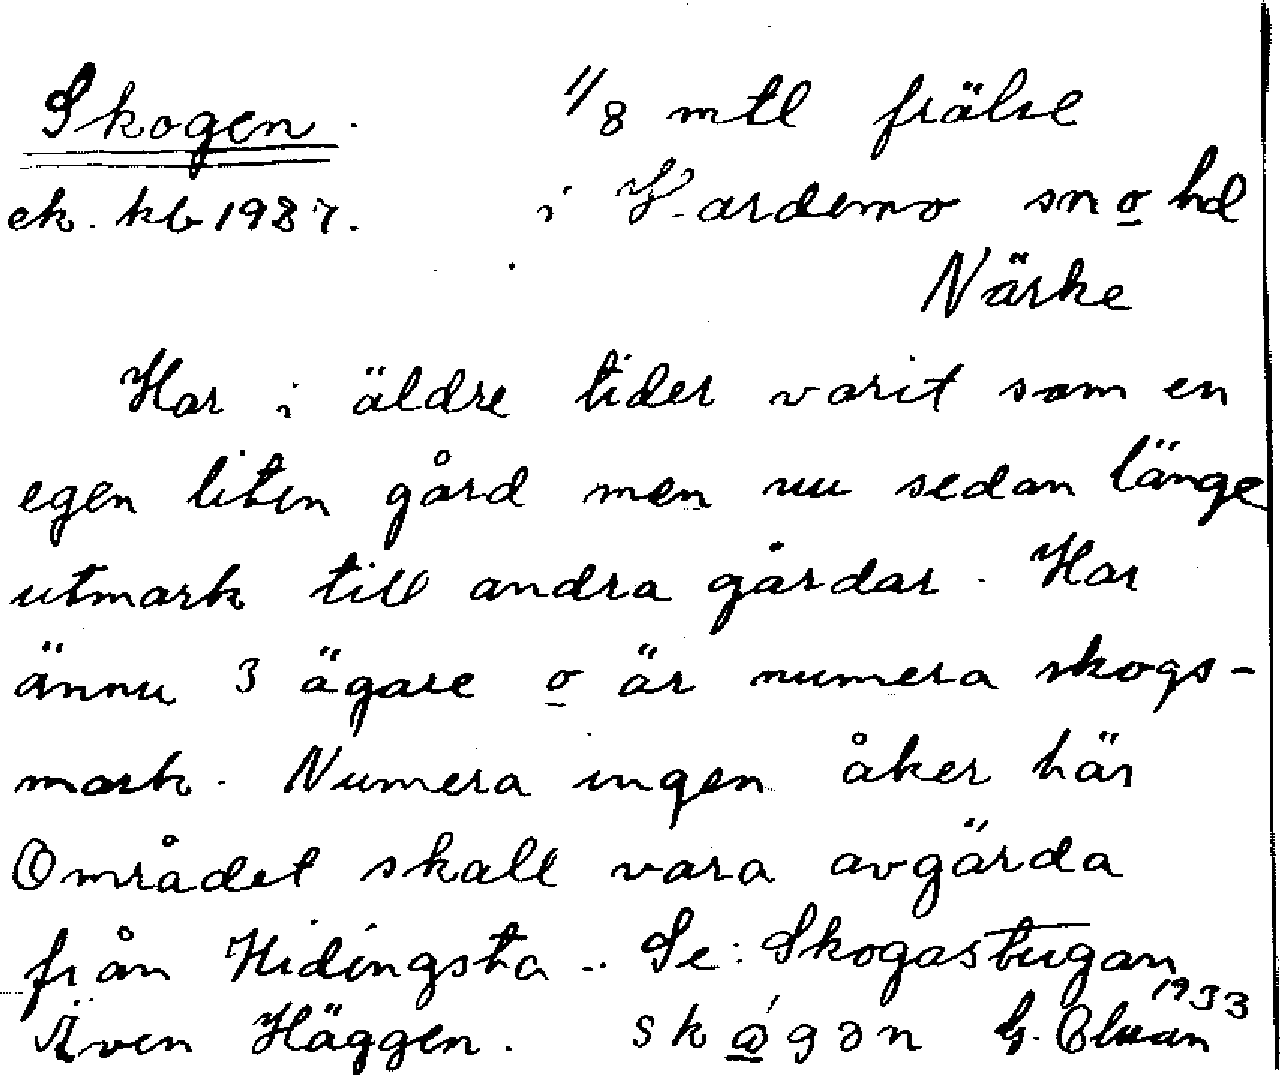 Skogen. 1/8 mtl frälse
ek. kb 1937. i Hardemo sn o hd
Närke
Har i äldre tider varit som en
egen liten gård men nu sedan länge
utmark till andra gårdar. Har
ännu 3 ägare o är numera skogs-
mark. Numera ingen åker här
Området skall vara avgärda
från Hidingsta.. Se: Skogastugan
Även Häggen. skógən G. 1933